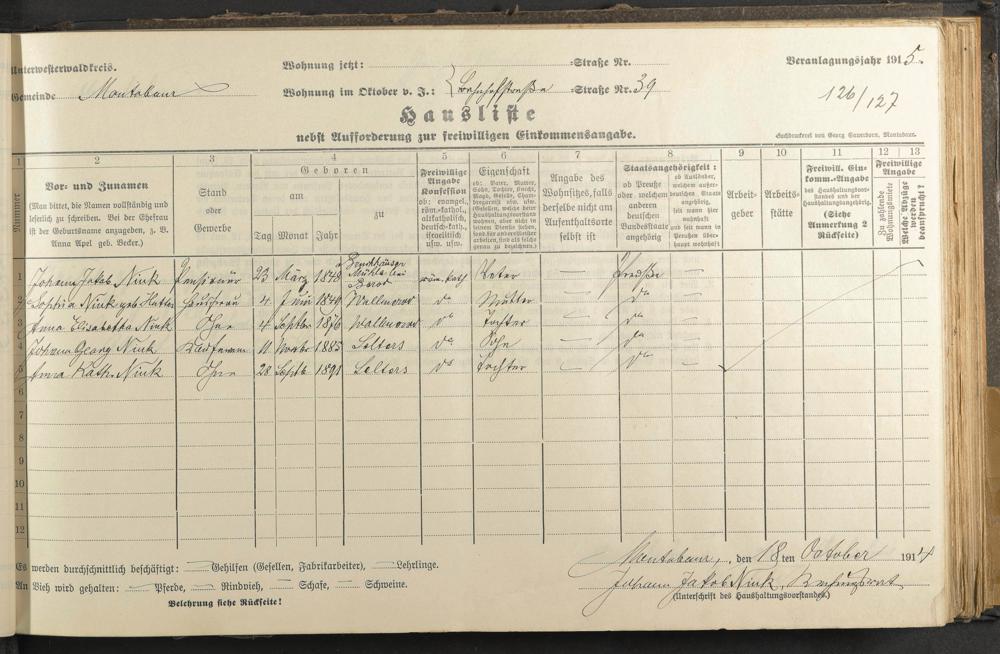 Unterwesterwaldkreis.
Wohnung jetzt: =Straße Nr.
Veranlagungsjahr 1915.
Gemeinde Montabaur
Wohnung im Oktober v. J.: Bahnhofstraße =Straße Nr. 39
126/127
Hausliste
nebst Aufforderung zur freiwilligen Einkommensangabe.
Buchdruckerei von Georg Sauerborn, Montabaur.
1 2 3 4 5 6 7 8 9 10 11 12 13
Nummer
Vor- und Zunamen
(Man bittet, die Namen vollständig und
leserlich zu schreiben. Bei der Ehefrau
ist der Geburtsname anzugeben, z. B.
Anna Apel geb. Becker.)
Stand
oder
Gewerbe
Geboren
am
zu
Tag Monat Jahr
Freiwillige
Angabe
Konfession
ob: evangel.,
röm.-kathol.,
altkatholisch,
deutsch-kath.,
israelitisch
usw. usw.
Eigenschaft
ob: Vater, Mutter,
Sohn, Tochter, Knecht,
Angabe des
Wohnsitzes, falls
derselbe nicht am
Aufenthaltsorte
selbst ist
Staatsangehörigkeit:
ob Preuße
oder welchem
anderen
deutschen
Bundesstaate
angehörig
ob Ausländer,
welchem außer-
deutschen Staate
angehörig,
seit wann hier
wohnhaft
und seit wann in
Preußen über-
haupt wohnhaft
Arbeit-
geber
Arbeits-
stätte
Freiwill. Ein-
komm.-Angabe
des Haushaltungsvor-
standes und der
Haushaltungsangehörig.
(Siehe
Anmerkung 2
Rückseite)
Freiwillige
Angabe
Zu zahlende
Wohnungsmiete
Welche Abzüge
werden
beansprucht?
1 Johann Jakob Nink Pensionär 23 März 1848 Mühle bei röm. kath Vater — Preuße —
2 Sophia Nink geb. Hutten Hausfrau 4 Juni 1840 Wallmerod do Mutter — do —
3 Anna Elisabetha Nink Ohne 4 Septbr 1876 Wallmerod do Tochter — do —
4 Johann Georg Nink Kaufmann 11 Novbr 1885 Selters do Sohn — do —
5 Anna Kath. Nink Ohne 28 Septb 1891 Selters do Tochter — do —
6
7
8
9
10
11
12
Es werden durchschnittlich beschäftigt: — Gehilfen (Gesellen, Fabrikarbeiter), — Lehrlinge.
Montabaur, den 18ten October 1914
An Vieh wird gehalten: — Pferde, — Rindvieh, — Schafe, — Schweine.
Johann Jakob Nink, Rechnungsrat
Belehrung siehe Rückseite!
(Unterschrift des Haushaltungsvorstandes.)